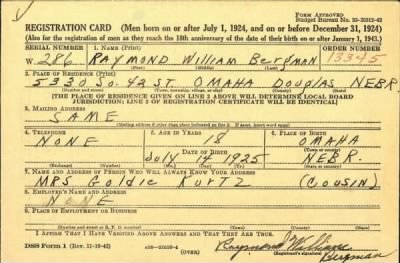 FORM APPROVED
Budget Bureau No. 33-R012-42
REGISTRATION CARD (Men born on or after July 1, 1924, and on or before December 31, 1924)
(Also for the registration of men as they reach the 18th anniversary of the date of their birth on or after January 1, 1943.)
SERIAL NUMBER 1. NAME (Print) ORDER NUMBER
W 286 RAYMOND William Bergman 13345
2. PLACE OF RESIDENCE (Print)
5330 So. 42 ST. OMAHA Douglas NEBR.
(Number and street) (Town, township, village, or city) (County) (State)
[THE PLACE OF RESIDENCE GIVEN ON LINE 2 ABOVE WILL DETERMINE LOCAL BOARD
JURISDICTION; LINE 2 OF REGISTRATION CERTIFICATE WILL BE IDENTICAL]
3. MAILING ADDRESS
SAME
4. TELEPHONE 5. AGE IN YEARS 6. PLACE OF BIRTH
NONE 18 OMAHA
DATE OF BIRTH (Town or county)
July 14 1925 NEBR.
(Exchange) (Number) (Mo.) (Day) (Yr.) (State or country)
7. NAME AND ADDRESS OF PERSON WHO WILL ALWAYS KNOW YOUR ADDRESS
MRS Goldie Kurtz (COUSIN)
8. EMPLOYER'S NAME AND ADDRESS
NONE
9. PLACE OF EMPLOYMENT OR BUSINESS
(Number and street or R. F. D. number) (Town) (County) (State)
I AFFIRM THAT I HAVE VERIFIED ABOVE ANSWERS AND THAT THEY ARE TRUE.
DSS Form 1 (Rev. 11-16-42) (OVER) Raymond William
Bergman